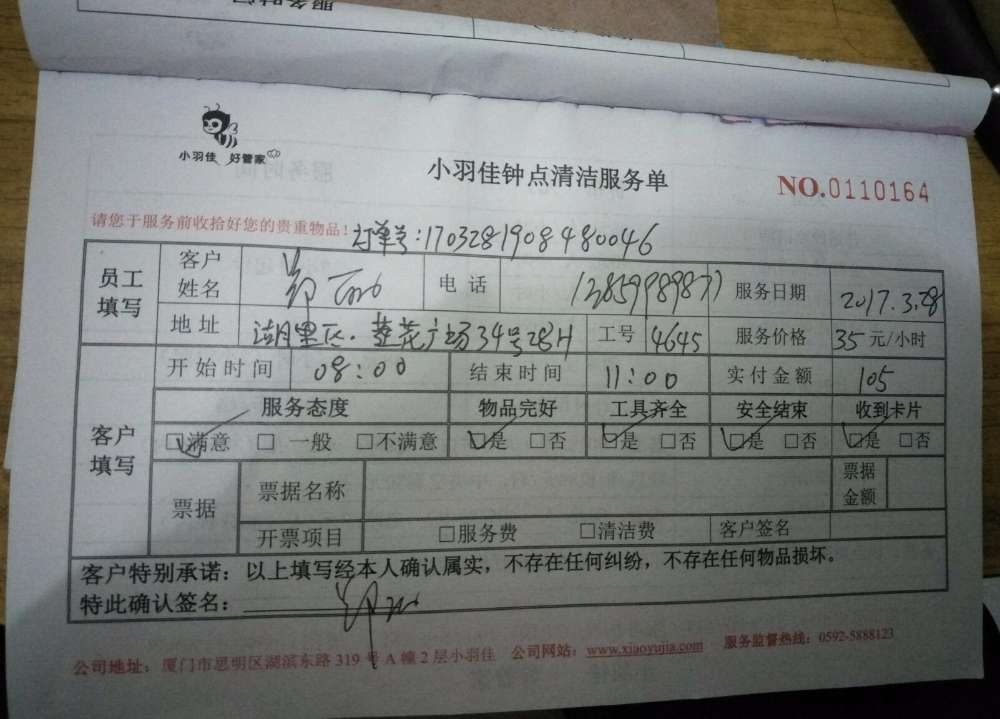 服务时间
小羽佳 好管家
小羽佳钟点清洁服务单
NO.0110164
请您于服务前收拾好您的贵重物品！ 订单号：1703281908480046
员工填写 客户姓名 郑 电话 13859989871 服务日期 2017.3.28
地址 湖里区·莲花广场34号28H 工号 4645 服务价格 35元/小时
客户填写 开始时间 08:00 结束时间 11:00 实付金额 105
服务态度 物品完好 工具齐全 安全结束 收到卡片
☑满意 □一般 □不满意 ☑是 □否 ☑是 □否 ☑是 □否 ☑是 □否
票据 票据名称 票据金额
开票项目 □服务费 □清洁费 客户签名
客户特别承诺：以上填写经本人确认属实，不存在任何纠纷，不存在任何物品损坏。
特此确认签名：郑
公司地址：厦门市思明区湖滨东路319号A幢2层小羽佳 公司网站：www.xiaoyujia.com 服务监督热线：0592-5888123